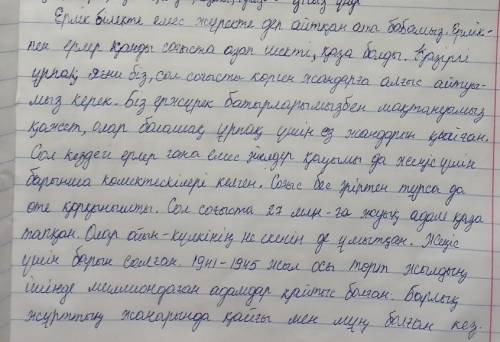 Ерлік білекте емес жүректе деп айтқан ата бабамыз. Ерлік-
пен ерлер қанды соғыста азап шекті, қаза болды. Қазіргі
ұрпақ яғни біз, сол соғысты көрген жандарға алғыс айтуы-
мыз керек. Біз ержүрек батырларымызбен мақтануымыз
қажет, олар болашақ ұрпақ үшін өз жандарын қиған.
Сол кездегі ерлер ғана емес әйелдер қауымы да жеңіс үшін
барынша көмектескілері келген. Соғыс бес әріптен тұрса да
өте қорқынышты. Сол соғыста 27 млн-ға жуық адам қаза
тапқан. Олар ойын-күлкінің не екенін де ұмытқан. Жеңіс
үшін барын салған. 1941-1945 жыл осы төрт жылдың
ішінде миллиондаған адамдар қайтыс болған. Барлық
жұрттың жанарында қайғы мен мұң болған кез.